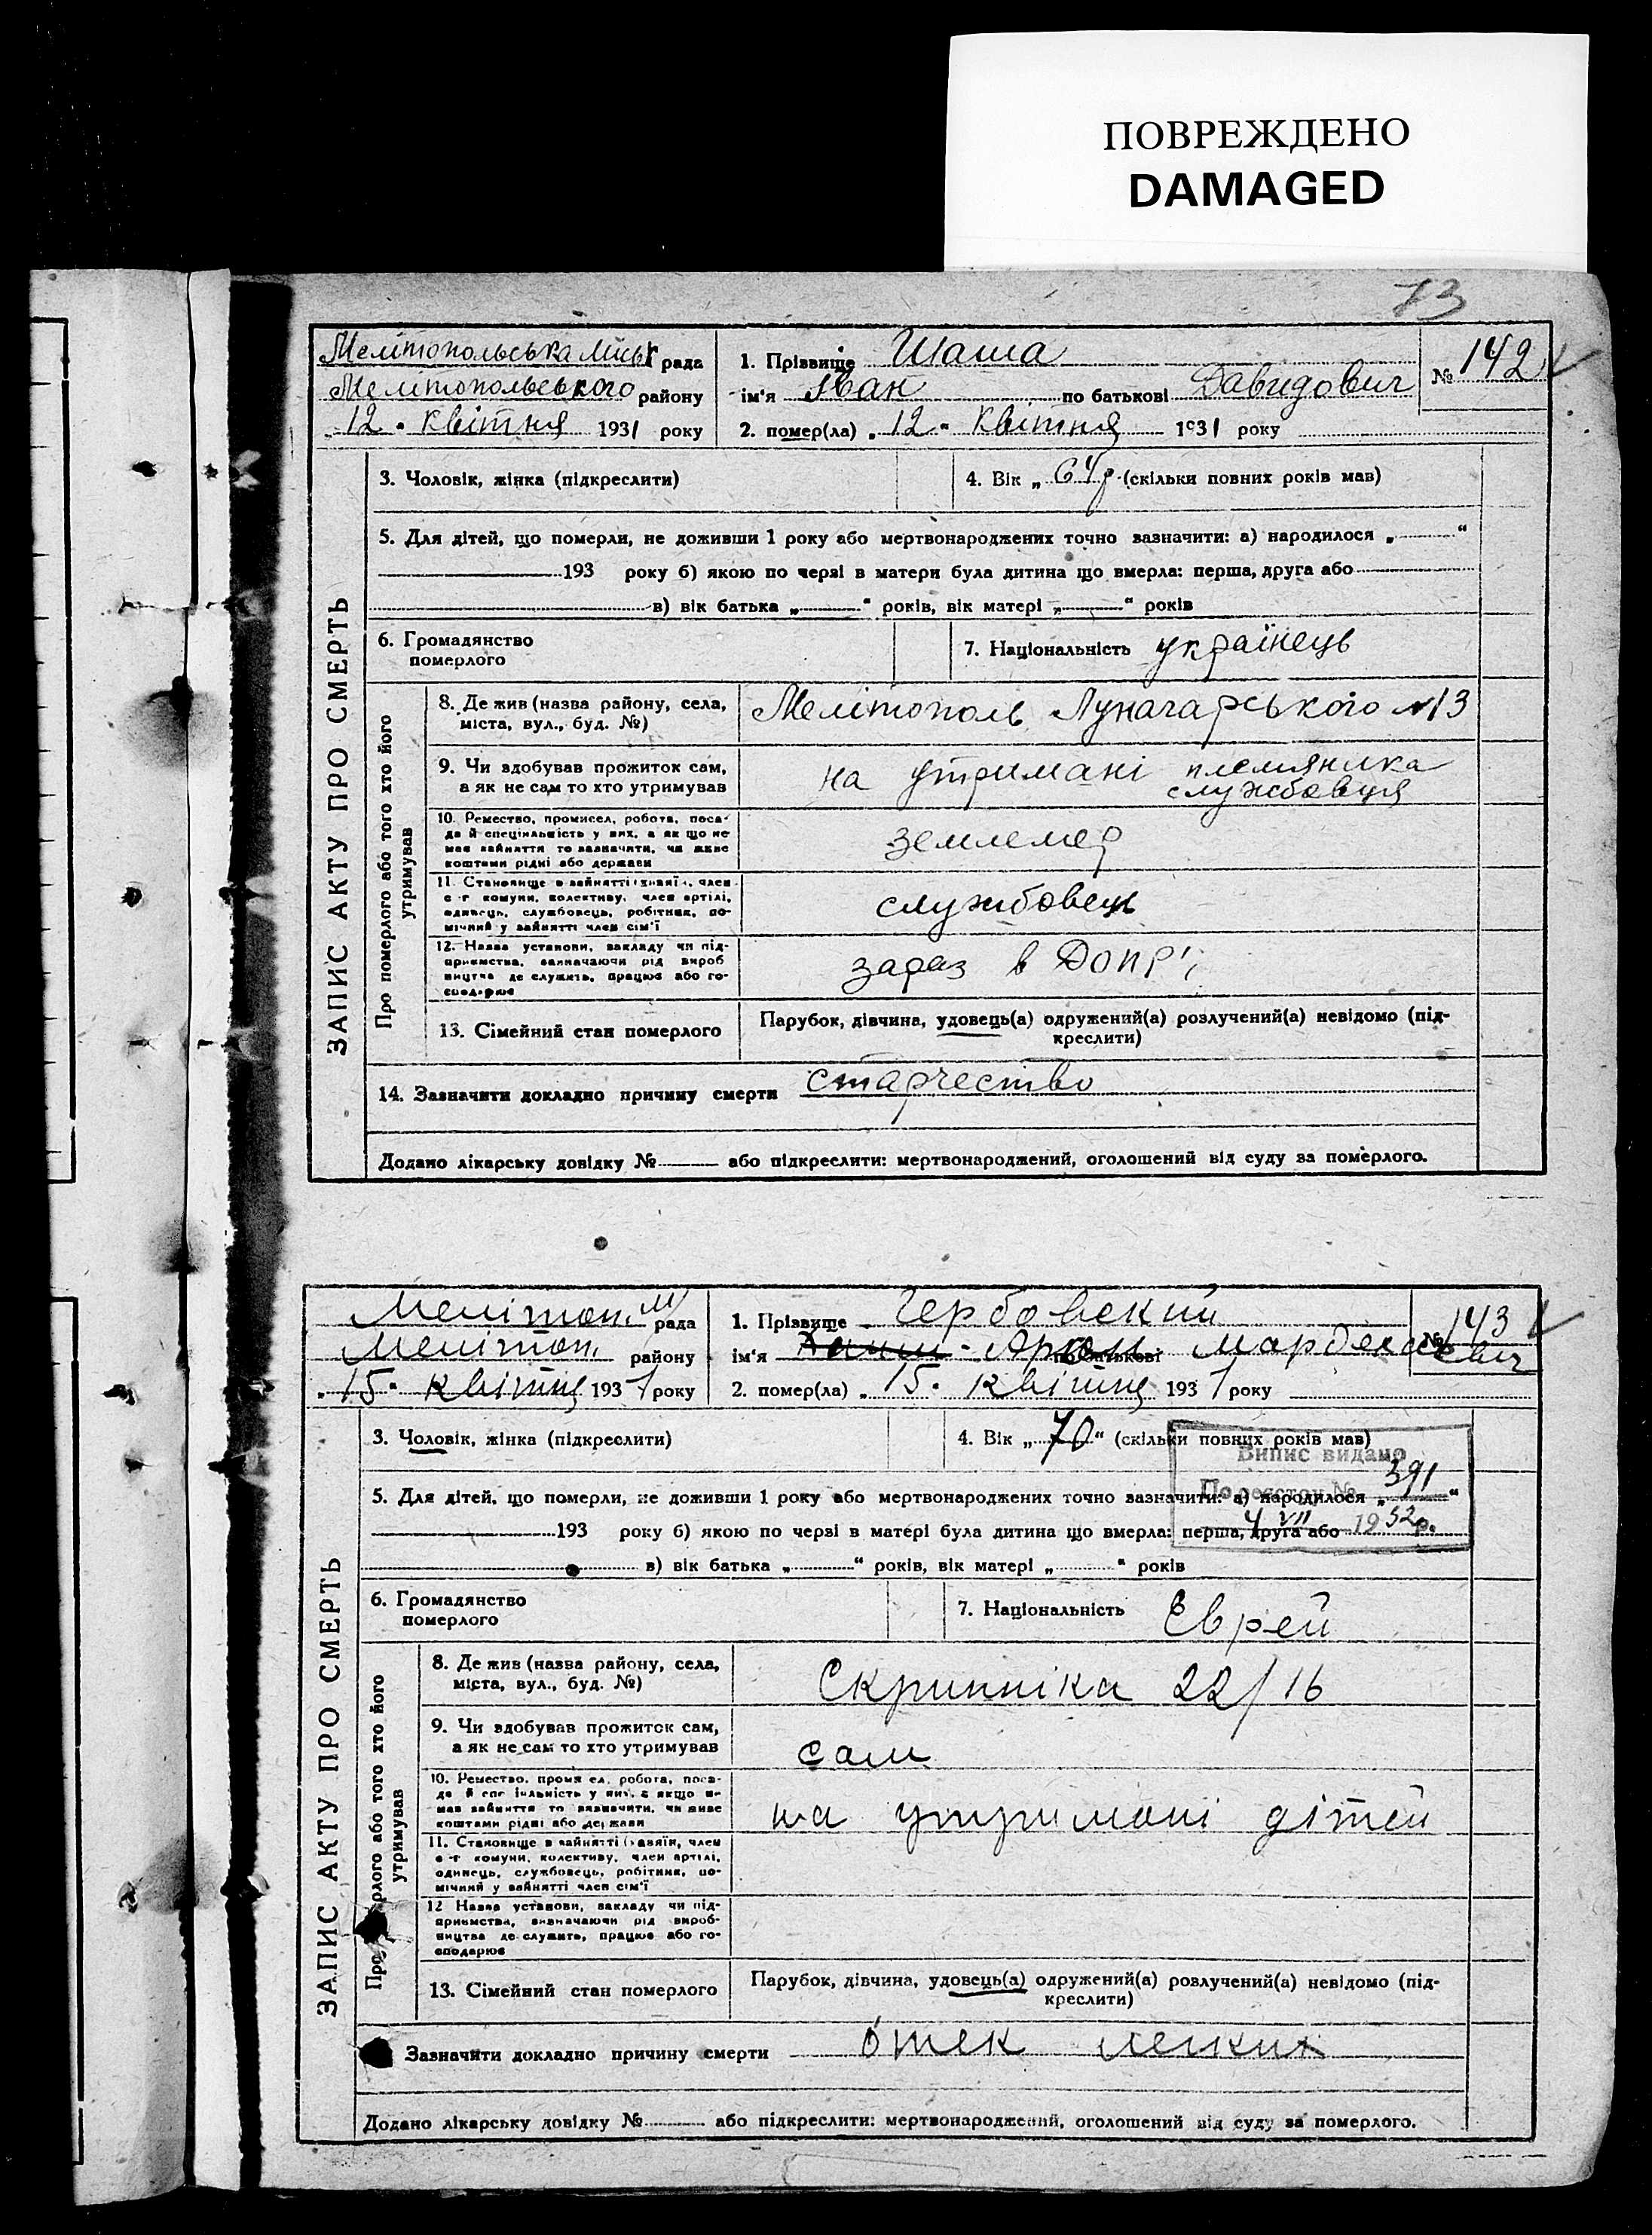 ПОВРЕЖДЕНО
DAMAGED
73
Мелітопольська міськ рада
Мелітопольського району
„12" Квітня 1931 року
1. Прізвище Шаша
ім'я Іван по батькові Давидович
2. помер(ла) „12" Квітня 1931 року
№ 142
ЗАПИС АКТУ ПРО СМЕРТЬ
3. Чоловік, жінка (підкреслити)
4. Вік „64р. (скільки повних років мав)
5. Для дітей, що померли, не доживши 1 року або мертвонароджених точно зазначити: а) народилося „ “
193 року б) якою по черзі в матери була дитина що вмерла: перша, друга або
в) вік батька „ “ років, вік матері „ “ років
6. Громадянство
померлого
7. Національність українець
Про померлого або того хто його
утримував
8. Де жив (назва району, села,
міста, вул., буд. №)
Мелітополь Луначарського №13
9. Чи здобував прожиток сам,
а як не сам то хто утримував
на утримані племяника
службовця
10. Ремество, промисел, робота, поса-
да й спеціяльність у них, а як що не
мав зайняття то зазначити, чи живе
коштами рідні або держави
землемер
11. Становище в зайнятті (хазяїн, член
с-г комуни, колективу, член артілі,
одинець, службовець, робітник, по-
мічний у зайнятті член сім'ї
службовець
12. Назва установи, закладу чи під-
приємства, зазначаючи рід вироб
ництва де служить, працює або го-
сподарює
зараз в Допрі
13. Сімейний стан померлого
Парубок, дівчина, удовець(а) одружений(а) розлучений(а) невідомо (під-
креслити)
14. Зазначити докладно причину смерти старчество
Додано лікарську довідку № або підкреслити: мертвонароджений, оголошений від суду за померлого.
Мелітоп. м рада
Мелітоп. району
„15" квітня 1931 року
1. Прізвище Гербовский
ім'я Арон по батькові Мардехаевич
2. помер(ла) „15" квітня 1931 року
№ 143
ЗАПИС АКТУ ПРО СМЕРТЬ
3. Чоловік, жінка (підкреслити)
4. Вік „70“ (скільки повних років мав)
Випис видано
По реестру № 391
4 VII 1952р.
5. Для дітей, що померли, не доживши 1 року або мертвонароджених точно зазначити: а) народилося „ “
193 року б) якою по черзі в матері була дитина що вмерла: перша, друга або
в) вік батька „ “ років, вік матері „ “ років
6. Громадянство
померлого
7. Національність Еврей
Про померлого або того хто його
утримував
8. Де жив (назва району, села,
міста, вул., буд. №)
Скрипніка 22/16
9. Чи здобував прожиток сам,
а як не сам то хто утримував
сам
10. Ремество, промисел, робота, поса-
да й спеціяльність у них, а якщо не
мав зайняття то зазначити, чи живе
коштами рідні або держави
на утримані дітей
11. Становище в зайнятті (хазяїн, член
с-г комуни, колективу, член артілі,
одинець, службовець, робітник, по-
мічний у зайнятті член сім'ї
12 Назва установи, закладу чи під-
приємства, зазначаючи рід вироб-
ництва де служить, працює або го-
сподарює
13. Сімейний стан померлого
Парубок, дівчина, удовець(а) одружений(а) розлучений(а) невідомо (під-
креслити)
Зазначити докладно причину смерти отек легких
Додано лікарську довідку № або підкреслити: мертвонароджений, оголошений від суду за померлого.